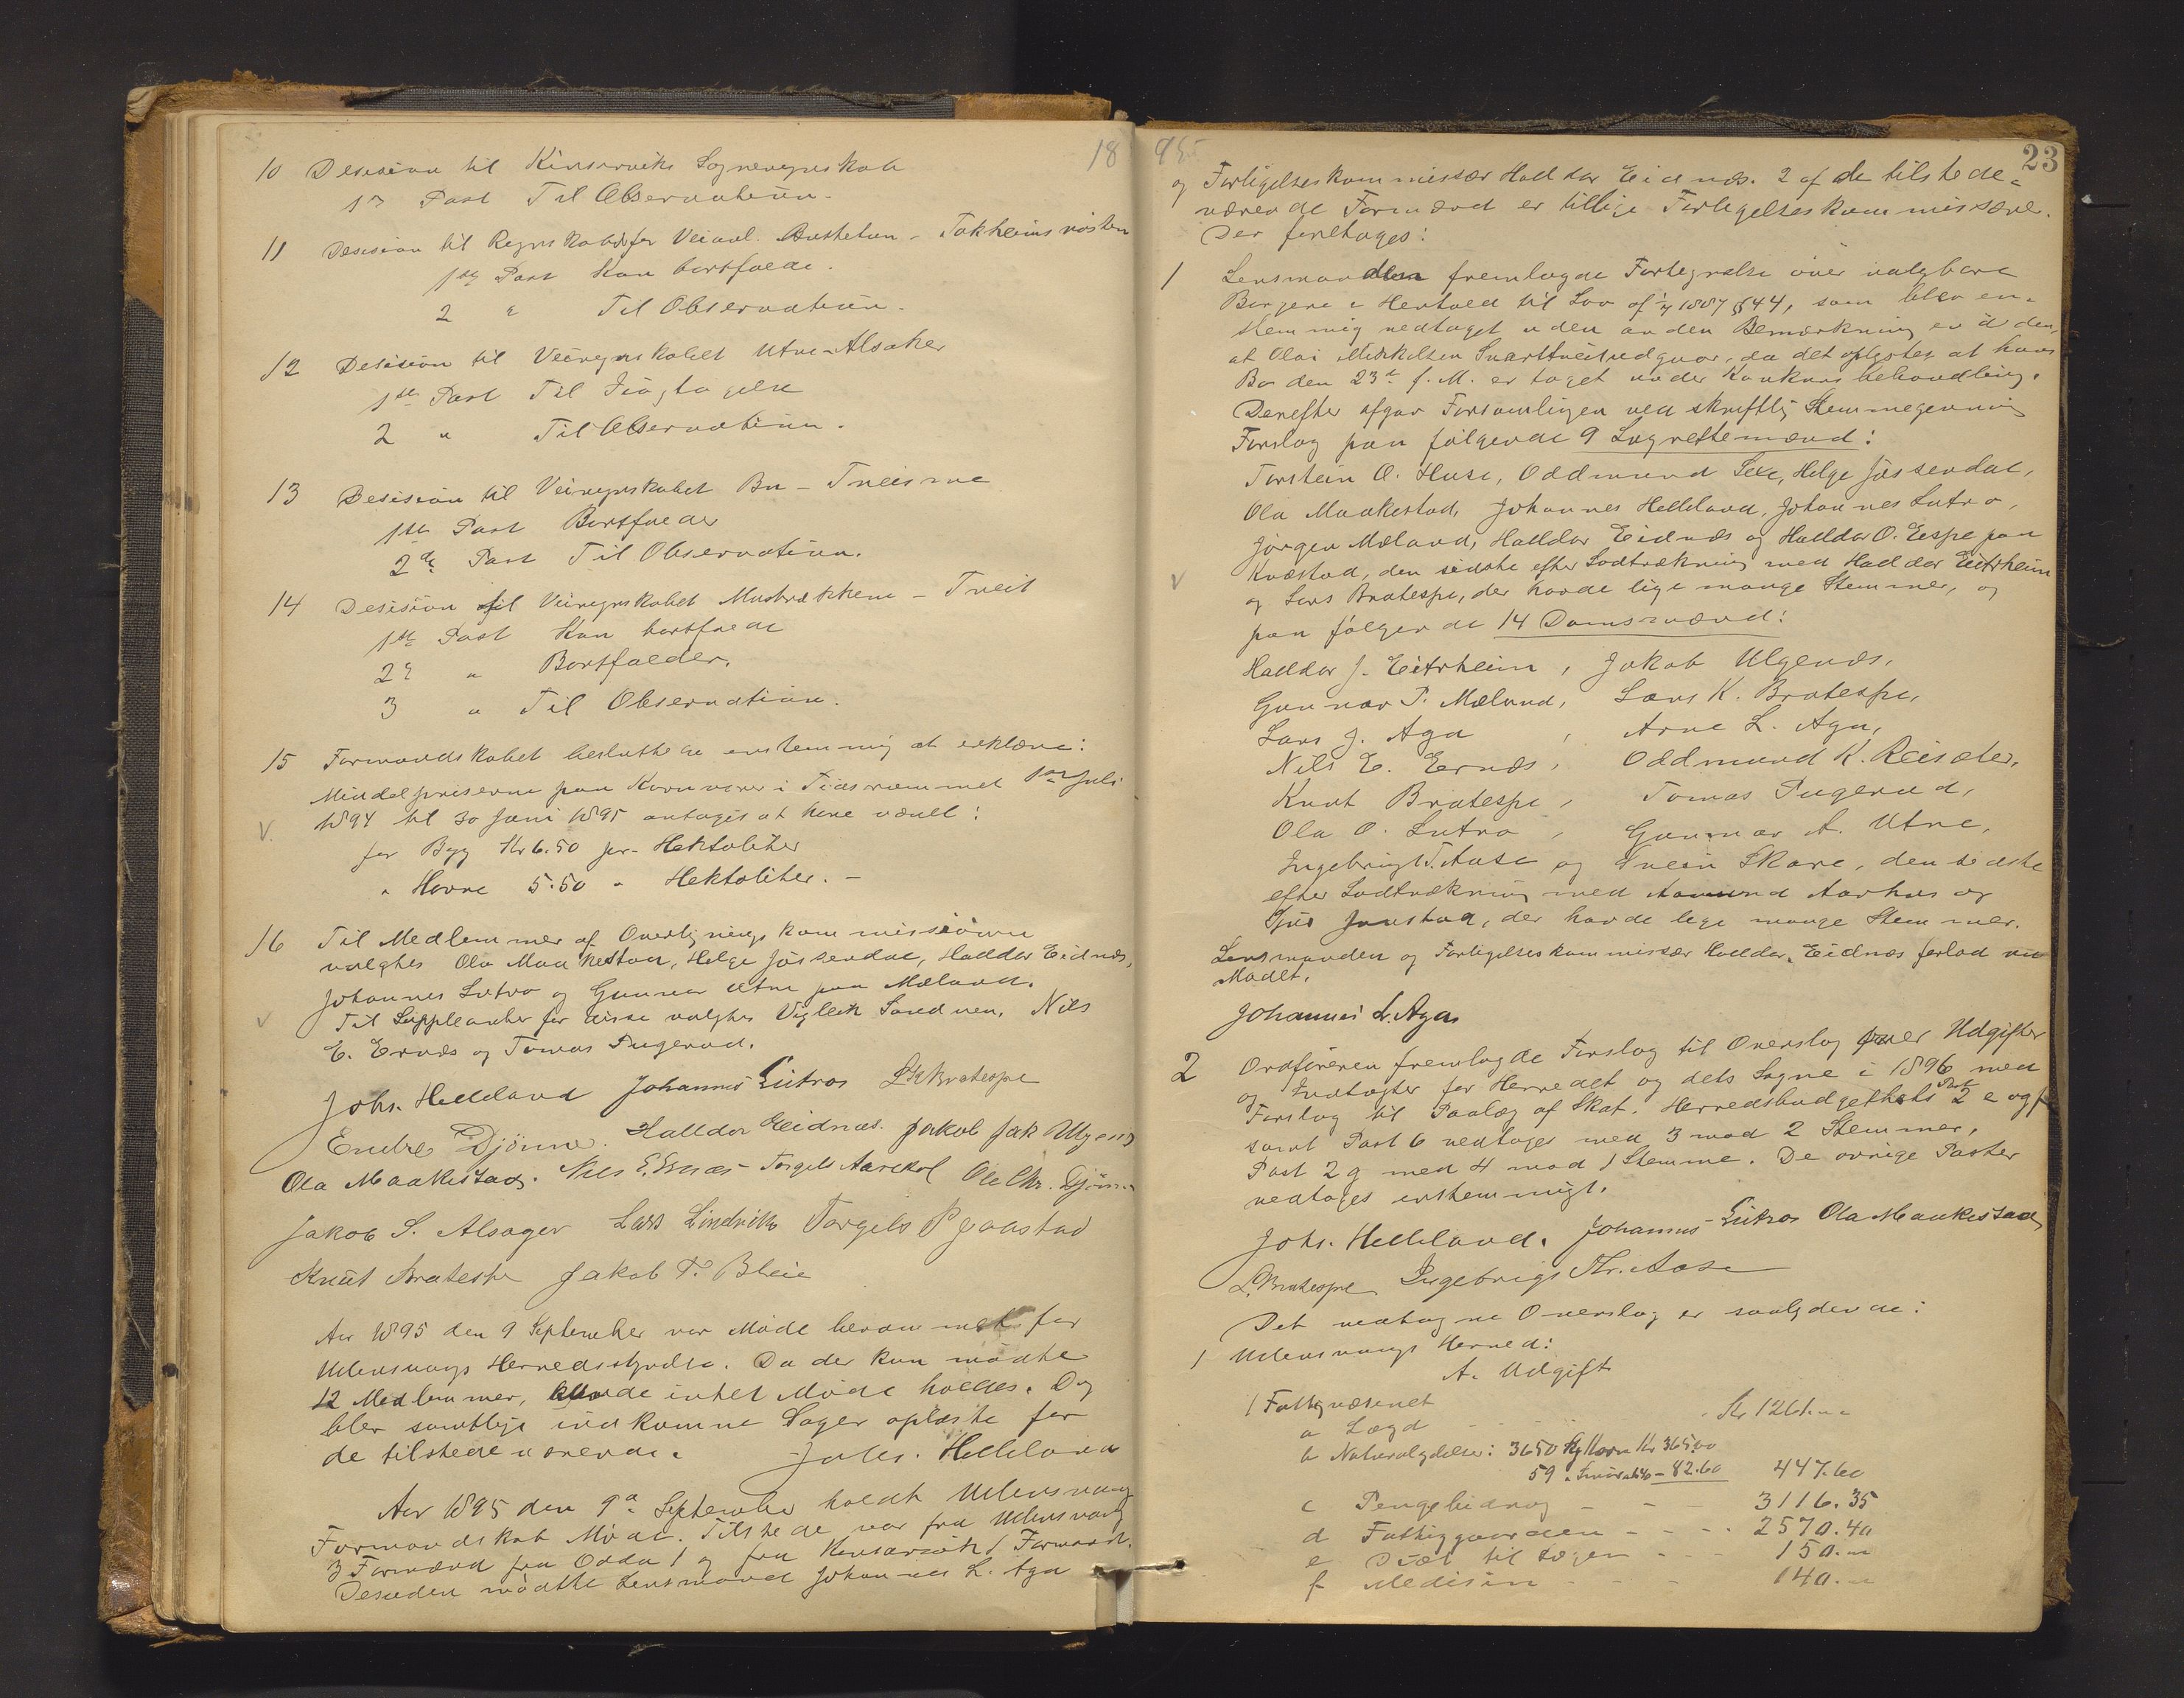 18
10 Desision til Kinserviks Sogneregnskab
1ste Post Til Observation.
11 Desision til Regnskabet for Veianl. - Tokheimsnøsten
1ste Post Kan bortfalde.
2 " Til Observation.
12 Desision til Veiregnskabet Utne-Alsaker
1ste Post Til Iagtagelse
2 " Til Observation.
13 Desision til Veiregnskabet Bu - Tveisme
1ste Post Bortfalder
2de Post Til Observation.
14 Desision til Veiregnskabet - Tveit
1ste Post Kan bortfalde
2 " Bortfalder.
3 " Til Observation.
15 Formandskabet besluttede enstemmig at erklære:
Middelpriserne paa Kornvarer i Tidsrummet 1ste Juli
1894 til 30 Juni 1895 antages at have været:
for Byg Kr 6.50 pr. Hektoliter
" Havre 5.50 " Hektoliter. -
16 Til Medlemmer af Overligningskommissionen
valgtes Ola Maakestad, Helge Jøssendal, Halldor Eidnæs,
Johannes Lutro og Gunnar Utne paa Mæland.
Til Suppleanter for disse valgtes Vigleik Sandven, Nils
E. Ernæs og Tomas Pugerud.
Johs. Helleland Johannes Lutro L K Bratespe
Endre Djønne. Halldor Eidnæs. Jakob Jak Ulgenæs
Ola Maakestad. Nils E. Ernæs - Torgels Aarekol Ole Chr. Djønne
Jakob S. Alsager Lars Lindvik Torgels P Jaastad
Knut Bratespe Jakob T. Bleie
Aar 1895 den 9 September var Møde berammet for
Ullensvangs Herredsstyrelse. Da der kun mødte
12 Medlemmer, kunde intet Møde holdes. Dog
blev samtlige indkomne Sager oplæste for
de tilstedeværende. Johs. Helleland
Aar 1895 den 9de September holdt Ullensvang
Formandskab Møde. Tilstede var fra Ullensvang
3 Formænd fra Odda 1 og fra Kinsarvik 1 Formand.
Desuden mødte Lensmand Johannes L. Aga
895
23
og Forligelseskommissær Halldor Eidnæs. 2 af de tilstede-
værende Formænd er tillige Forligelseskommissære.
Der foretages:
1 Lensmanden fremlagde Fortegnelse over valgbare
Borgere i Henhold til Lov af 1/7 1887 § 44, som blev en-
stemmig vedtaget uden anden Bemærkning end den,
at Olai Mikkelsen Svarttveit udgaar, da det oplystes at hans
Bo den 23de f. M. er taget under Konkursbehandling.
Derefter afgav Forsamlingen ved skriftlig Stemmegivning
Forslag paa følgende 9 Lagrettemænd:
Torstein O. Huse, Oddmund Sexe, Helge Jøssendal,
Ola Maakestad, Johannes Helleland, Johannes Lutro,
Jørgen Mæland, Halldor Eidnæs og Halldor O. Espe paa
Kvæstad, den sidste efter Lodtrækning med Halldor Eitrheim
og Lars Bratespe, der havde lige mange Stemmer, og
paa følgende 14 Domsmænd:
Halldor J. Eitrheim, Jakob Ulgenæs,
Gunnar P. Mæland, Lars K. Bratespe,
Lars J. Aga, Arne L. Aga,
Nils E. Ernæs, Oddmund K. Reisæter,
Knut Bratespe, Tomas Pugerud,
Ola O. Lutro, Gunnar A. Utne,
Ingebrigt T. Aase og Svein Skare, den sidste
efter Lodtrækning med Aamund Aarhus og
Sjur Jaastad, der havde lige mange Stemmer.
Lensmanden og Forligelseskommissær Halldor Eidnæs forlod nu
Mødet.
Johannes L. Aga
2 Ordføreren fremlagde Forslag til Overslag over Udgifter
og Indtægter for Herredet og dets Sogne i 1896 med
Forslag til Paalæg af Skat. Herredsbudgettets Post 2 e og f
samt Post 6 vedtages med 3 mod 2 Stemmer,
Post 2 g med 4 mod 1 Stemme. De øvrige Poster
vedtages enstemmigt.
Johs. Helleland. Johannes Lutro Ola Maakestad
L. Bratespe Ingebrigt Th. Aase
Det vedtagne Overslag er saalydende:
1 Ullensvangs Herred:
A. Udgift
1 Fattigvæsenet
a Lægd - - - Kr 1261.00
b Naturalydelser: 3650 Kg Korn Kr 365.00
59 " Smør a 1.40 - 82.60 447.60
c Pengebidrag - - - 3116.35
d Fattiggaarden - - - 2570.40
e Diæt til Lægen - - - 150.00
f Medisin - - - 140.00